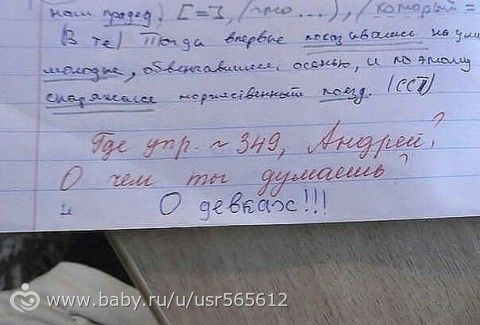 наш прадед). [=], (что ...), (который =
(В те) Тогда впервые показывались на ули
молодые, обвенчавшиеся осенью, и поэтому
снаряжался торжественный поезд. (ССП)
Где упр. № 349, Андрей?
О чем ты думаешь?
О девках!!!
www.baby.ru/u/usr565612